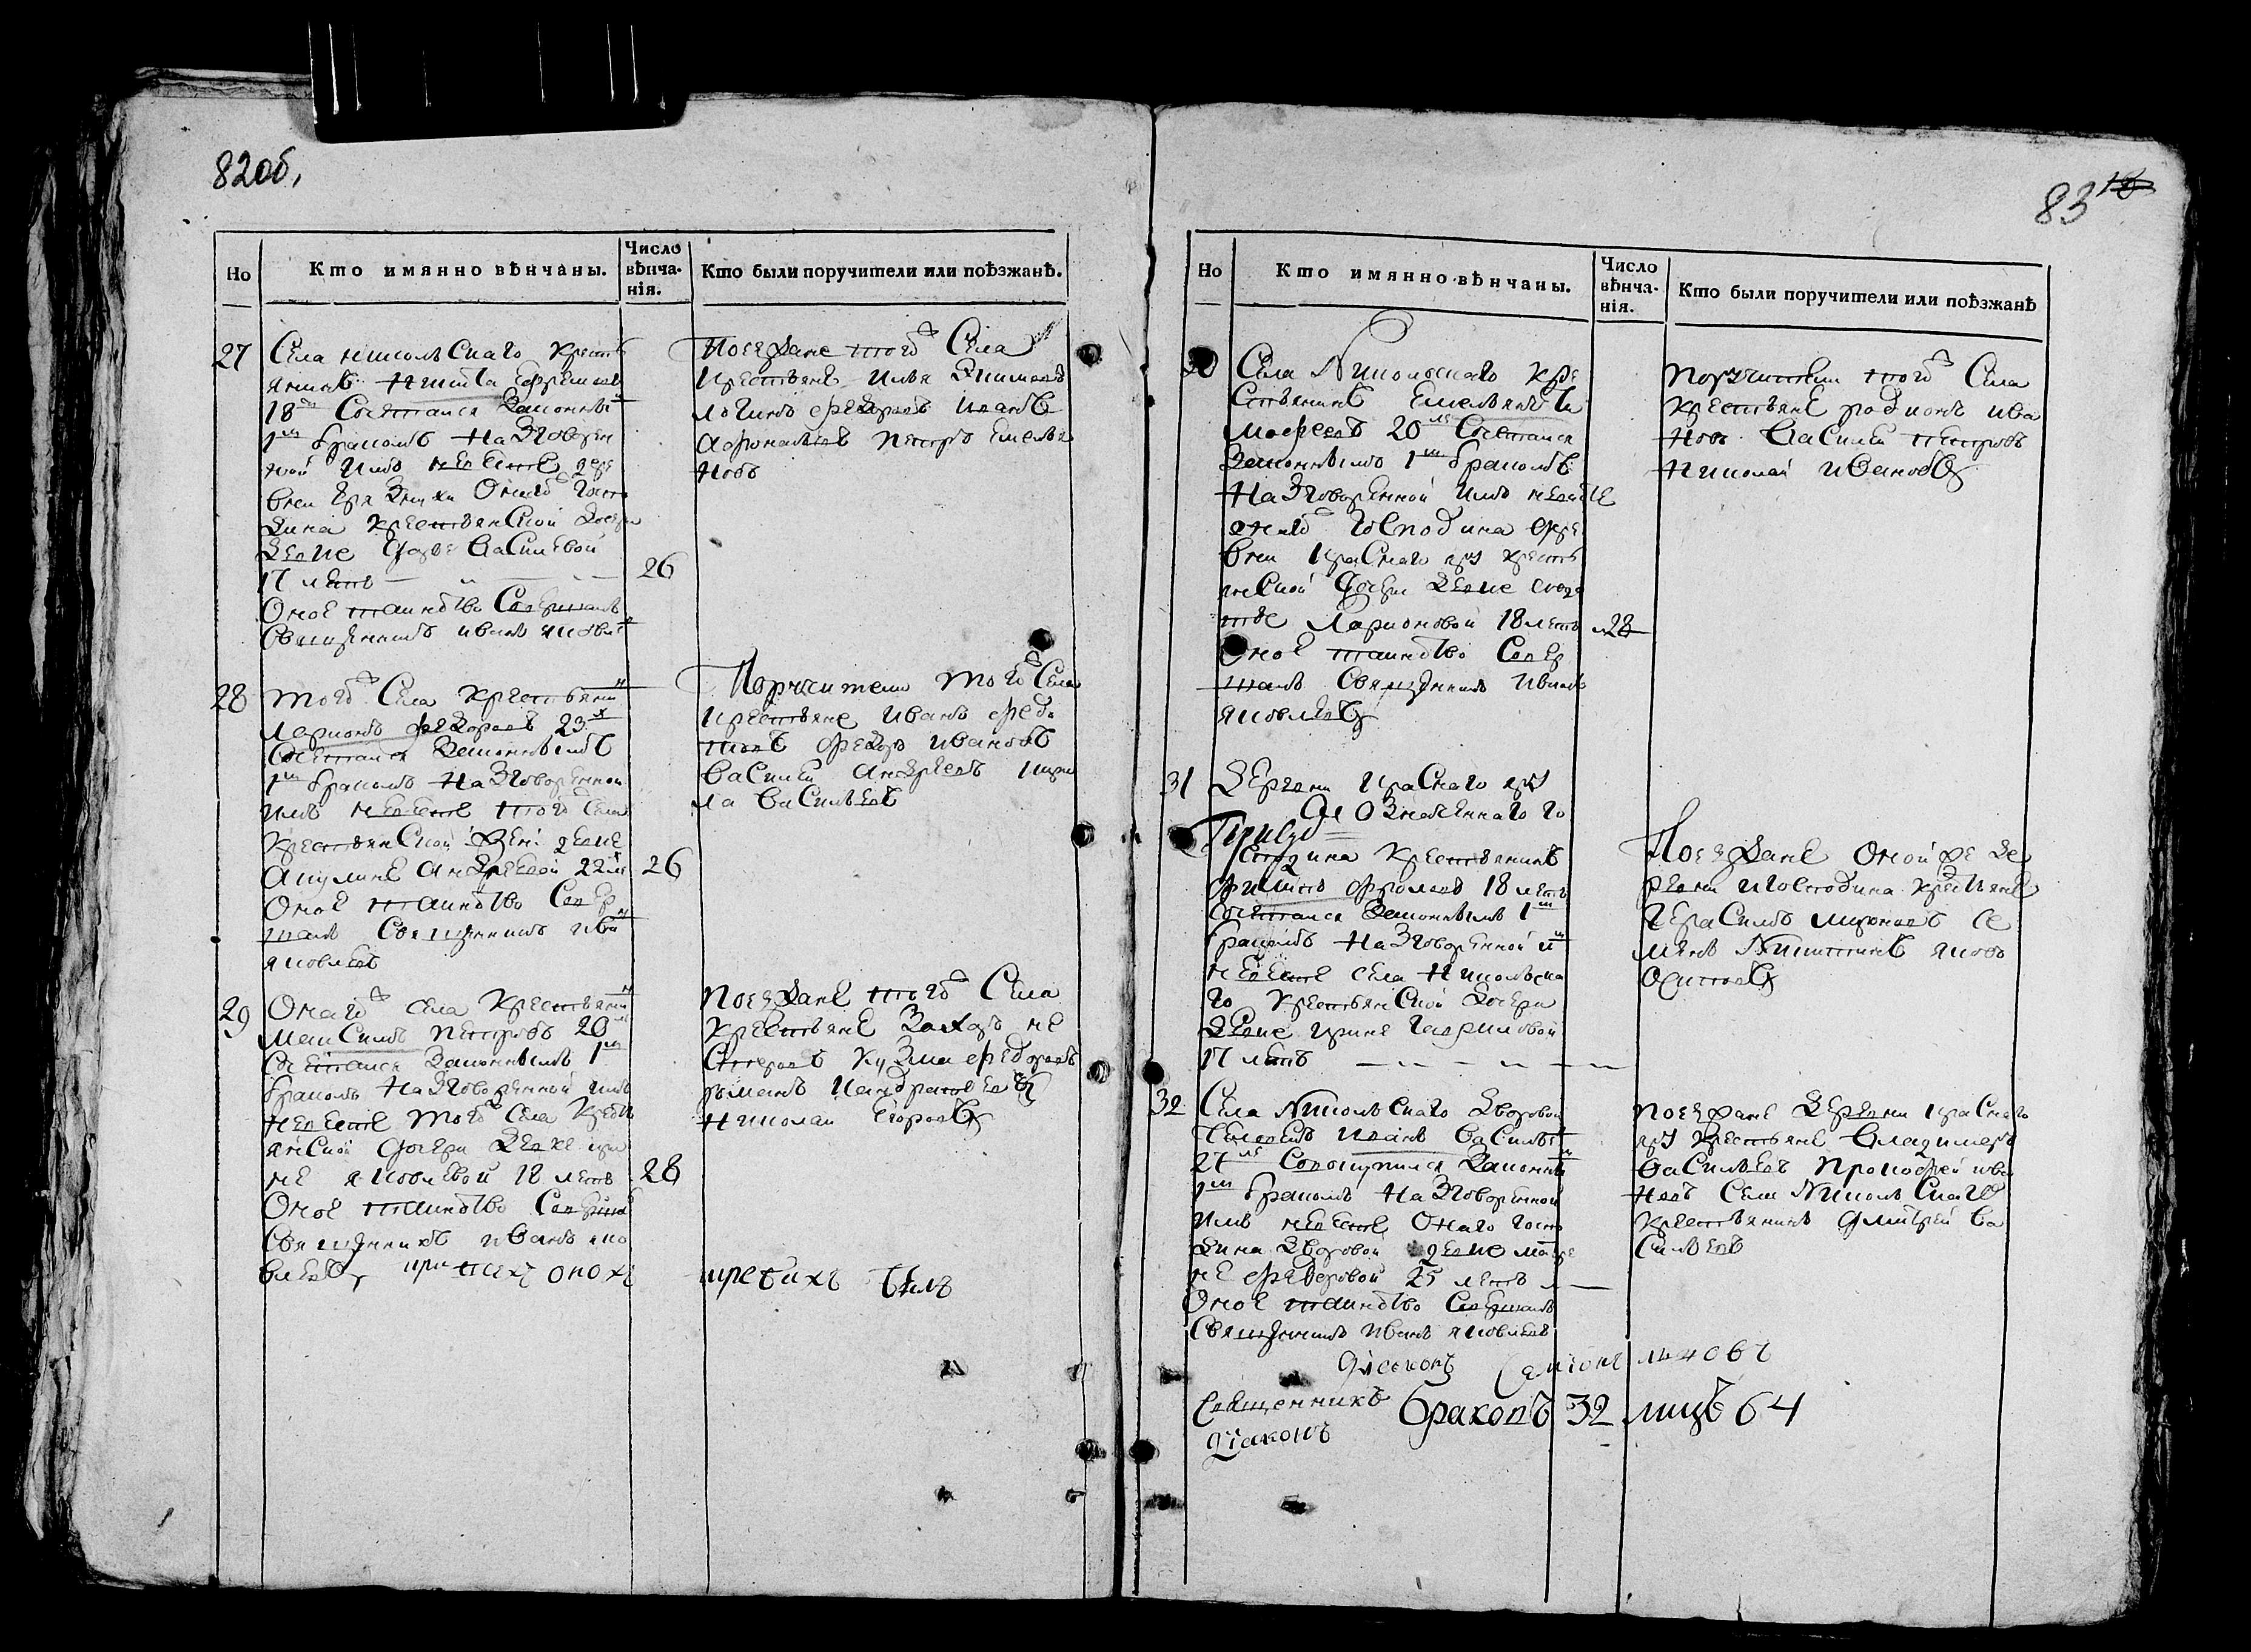 82об.
Но
Кто имянно вѣнчаны.
Число вѣнча-нія.
Кто были поручители или поѣзжанѣ.
27
Села никольскаго кресть
янинъ никита ефремовъ
18 Сочетался законны
1м бракомъ на Зговорен
ной имъ невесте дере
вни
зина крестьянской дочери
девке васильевой
17 летъ
Оное таинство Совершалъ
Священникъ иванъ яковле
26
Поезжане того Села
крестьяне илья
логинъ федоровъ иванъ
афонасьевъ петръ емелья
новъ
28
того Села крестьяни
ларионъ федоровъ 23
Сочетался Законнымъ
1м бракомъ на Зговоренной
имъ невесте того Села
крестьянской девке
акулине андреевой 22
Оное таинство Совер
шалъ Священникъ ива
яковлевъ
26
Поручители того Села
крестьяне иванъ федо
товъ федоръ ивановъ
василей андреевъ кири
ла васильевъ
29
Онаго села крестьяни
максимъ петровъ 20
Сочетался Законнымъ 1м
бракомъ на Зговоренной имъ
невесте того Села кресть
янской дочери девке ири
не яковлевой 18 летъ
Оное таинство Соверша
Священникъ иванъ яко
влевъ, при
28
поезжане того Села
крестьяне Захаръ не
стеровъ кузма федоровъ
романъ кандратьевъ
николай егоровъ
83
Но
Кто имянно вѣнчаны.
Число вѣнча-нія.
Кто были поручители или поѣзжанѣ
30
Села Никольскаго кре
стьянинъ емельянъ
20 Сочетался
Законнымъ 1м бракомъ
на Зговоренной имъ невесте
онаго господина дере
вни краснаго яру кресть
янской дочери девке
ларионовой 18 летъ
Оное таинство Совер
шалъ Священникъ иванъ
яковлевъ
28
поручители того Села
крестьяне родионъ ива
новъ василей петровъ
николай ивановъ
31
Деревни краснаго яру
Означеннаго го
сподина крестьянинъ
филипъ фроловъ 18 летъ
Сочетался Законнымъ 1м
бракомъ на Зговоренной и
невесте села никольска
го крестьянской дочери
девке ирине гавриловой
17 летъ
Поезжане оной же де
ревни игосподина крестьяне
герасимъ мироновъ се
менъ Никитинъ яковъ
осиповъ
32
Села Никольскаго дворовой
человекъ иванъ васильев
27 Совокупился Законны
1м бракомъ на Зговоренной
имъ невесте Онаго госпо
дина дворовой девке матре
не федоровой 25 летъ
Оное таинство Совершалъ
Священникъ иванъ яковлевъ
поезжане Деревни краснаго
яру крестьяне владимеръ
васильевъ прокофей ива
новъ Села Никольскаго
крестьянинъ дмитрей ва
сильевъ
діаконъ
Священникъ
браковъ 32 лицъ 64
діаконъ